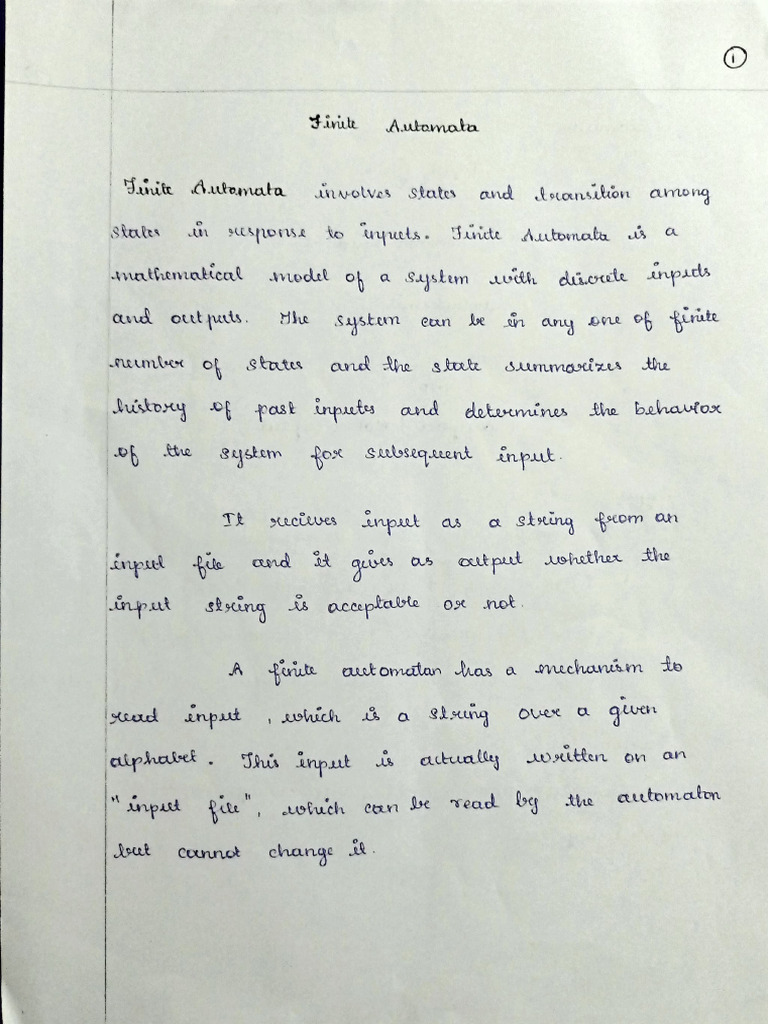 1
Finite Automata
Finite Automata involves states and transition among
states in response to inputs. Finite Automata is a
mathematical model of a system with discrete inputs
and outputs. The system can be in any one of finite
number of states and the state summarizes the
history of past inputes and determines the behavior
of the system for subsequent input.
It recieves input as a string from an
input file and it gives as output whether the
input string is acceptable or not.
A finite automatan has a mechanism to
read input , which is a string over a given
alphabet. This input is actually written on an
"input file", which can be read by the automaton
but cannot change it.